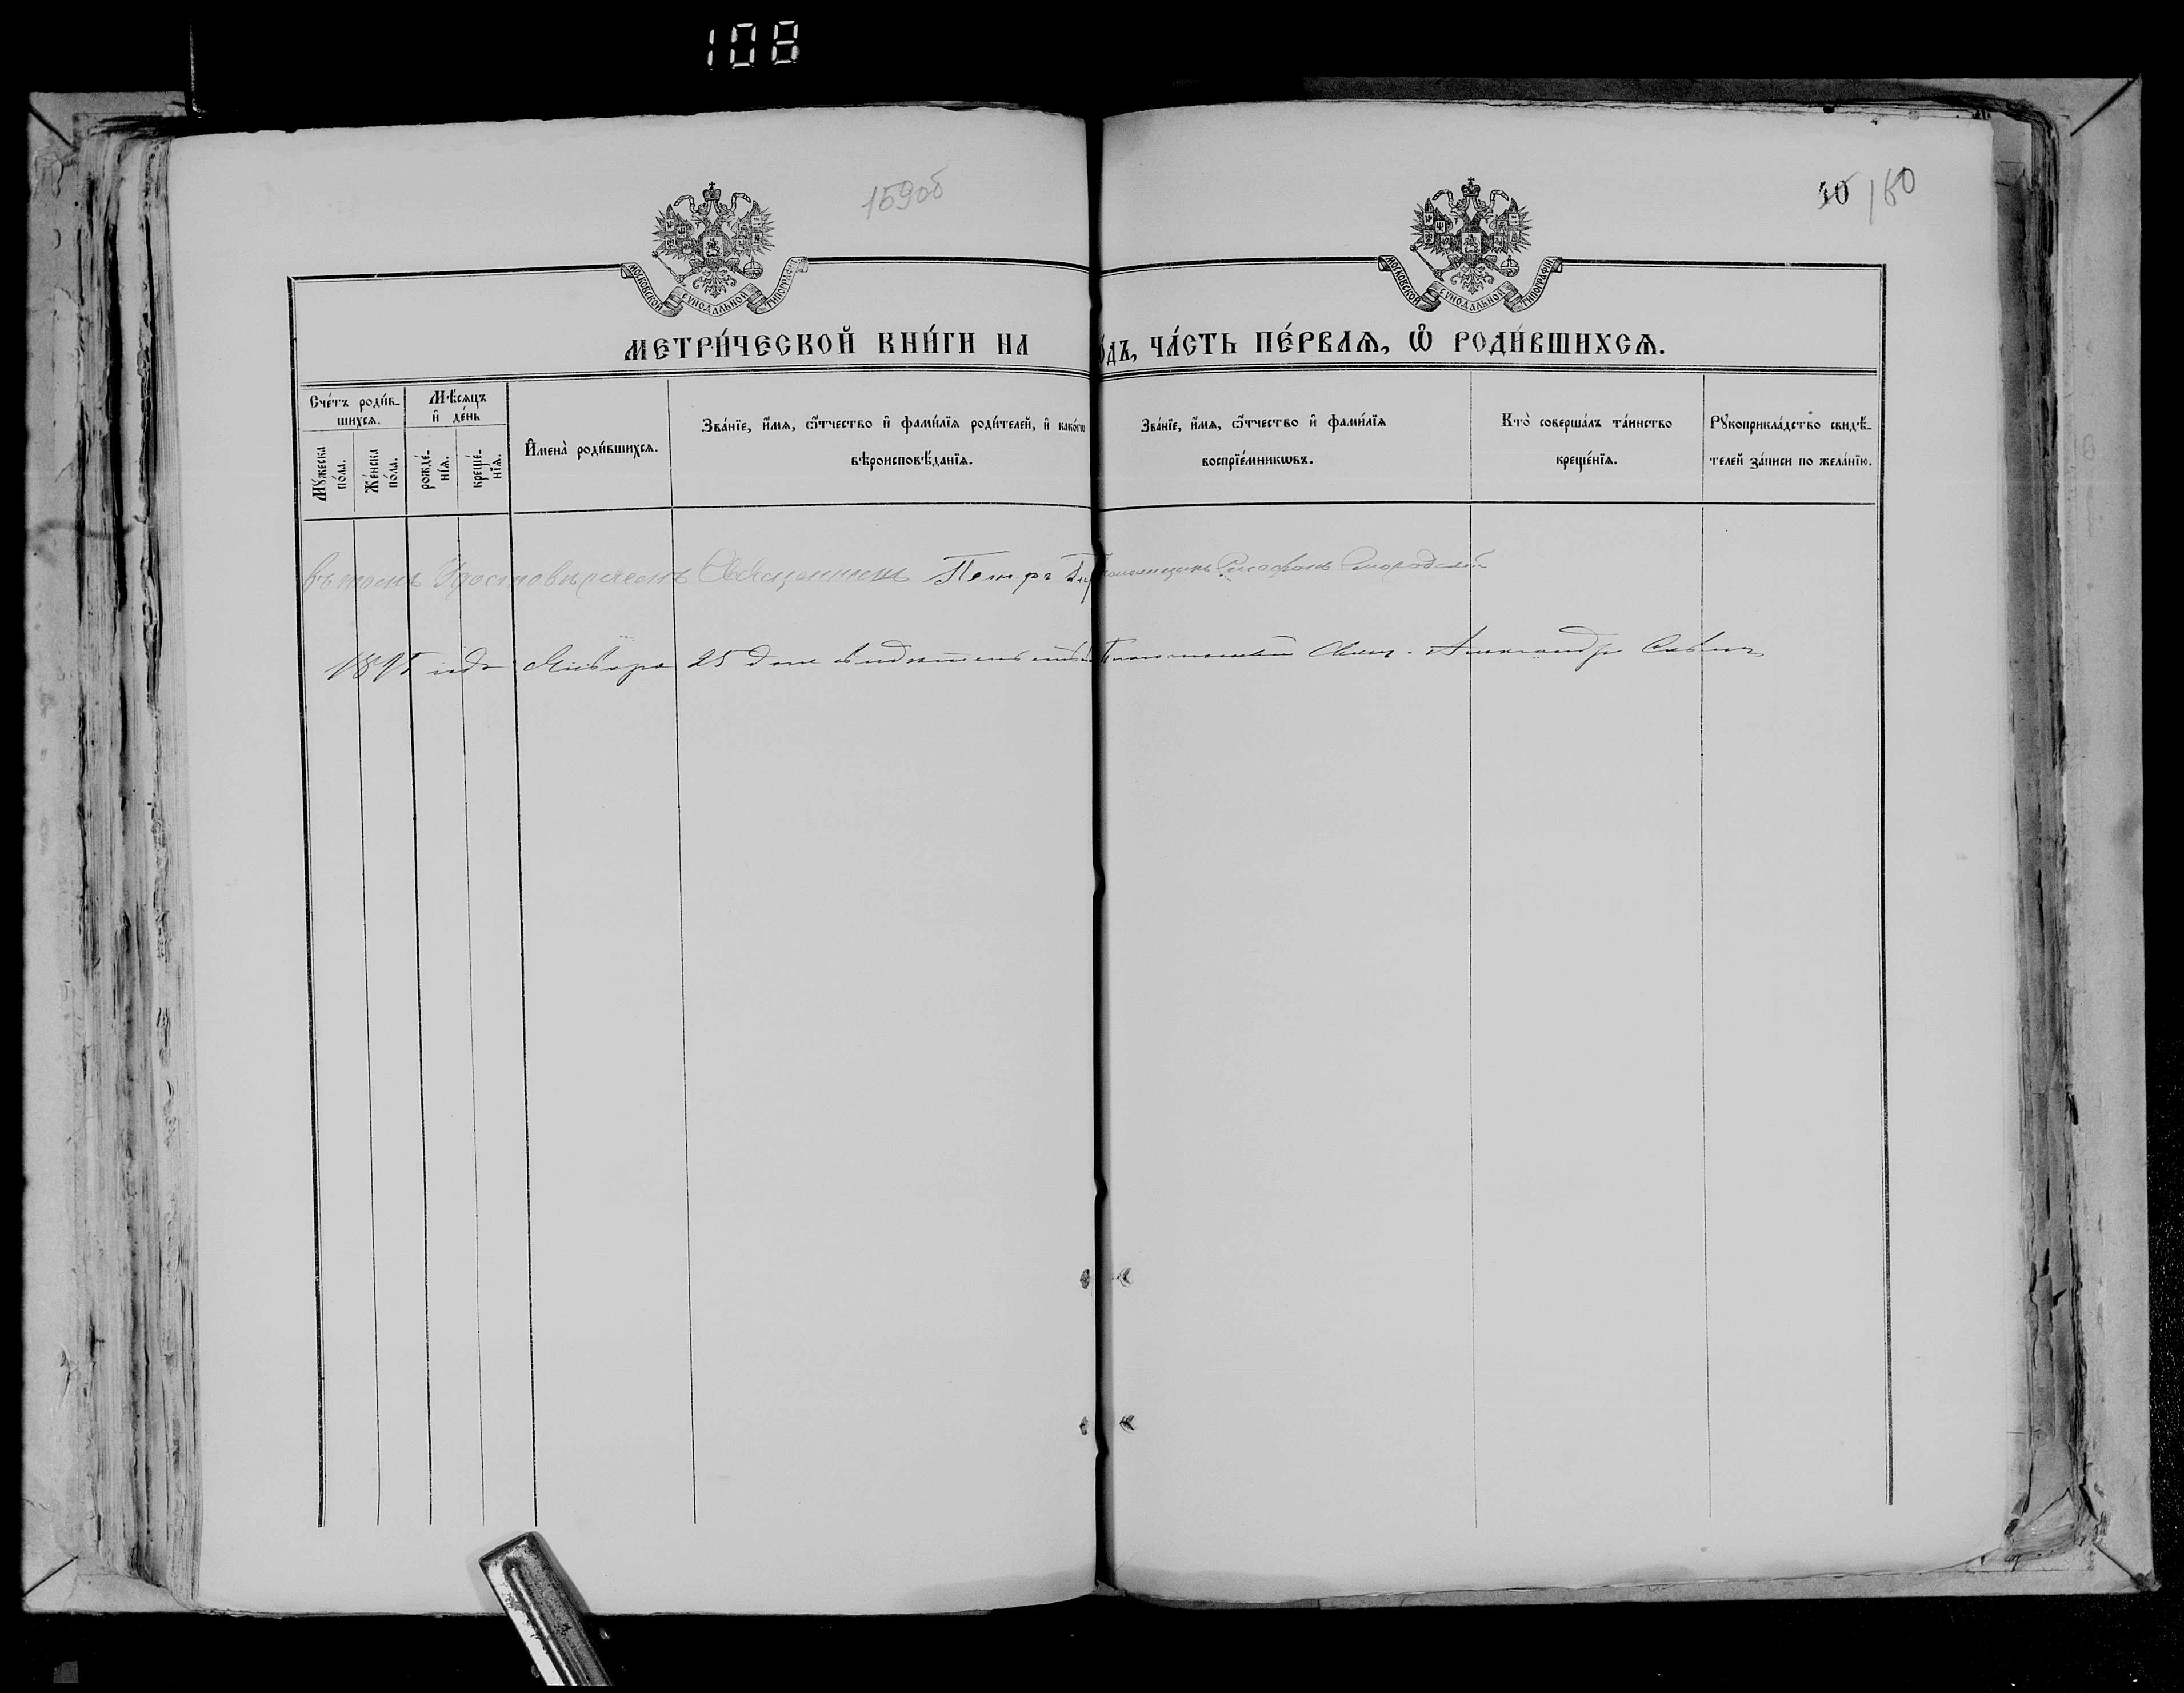 108
159об
10 160
МОСКОВСКОЙ СѴНОДАЛЬНОЙ ТИПОГРАФІИ
МОСКОВСКОЙ СѴНОДАЛЬНОЙ ТИПОГРАФІИ
МЕТРИ́ЧЕСКОЙ КНИ́ГИ НА о́дъ, ЧА́СТЬ ПЕ́РВАѦ, Ѽ РОДИ́ВШИХСѦ.
Сче́тъ роди́вшихсѧ.
Мꙋ́жеска по́ла.
Же́нска по́ла.
Мѣ́сѧцъ и҆ де́нь
рожде́нїѧ.
креще́нїѧ.
И҆мена̀ роди́вшихсѧ.
Зва́нїе, и҆́мѧ, ѻ҆́тчество и҆ фами́лїѧ роди́телей, и҆ како́гѡ
вѣроисповѣ́данїѧ.
Зва́нїе, и҆́мѧ, ѻ҆́тчество и҆ фами́лїѧ
воспрїе́мникѡвъ.
Кто̀ соверша́лъ та́инство
креще́нїѧ.
Рꙋкоприкла́дство свидѣ́-
телей за́писи по жела́нїю.
въ томъ Священникъ Петръ
года Января 25 дня Свящ. Александръ